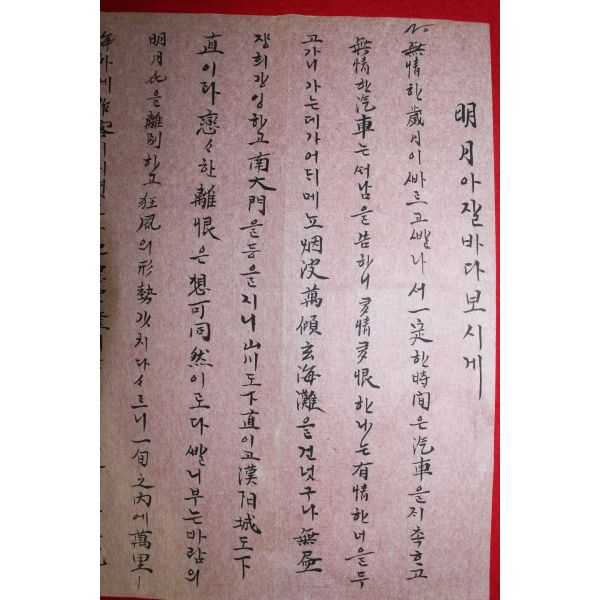 明月아잘바다보시게
無情한歲月이싸르고쌜나서一定한時間은汽車을지촉흐고
無情한汽車는서남을告하니多情多恨한나는有情한너을두
고가니가는데가어듸메뇨烟波萬傾玄海灘을건넛구나無晝
장희강잉하고南大門을등을지니山川도下直이고漢阳城도下
直이라戀々한離恨은想可同然이도다쌜니부는바람의
明月氏을離別하고狂風의形勢갓치다々르니一旬之內에萬里